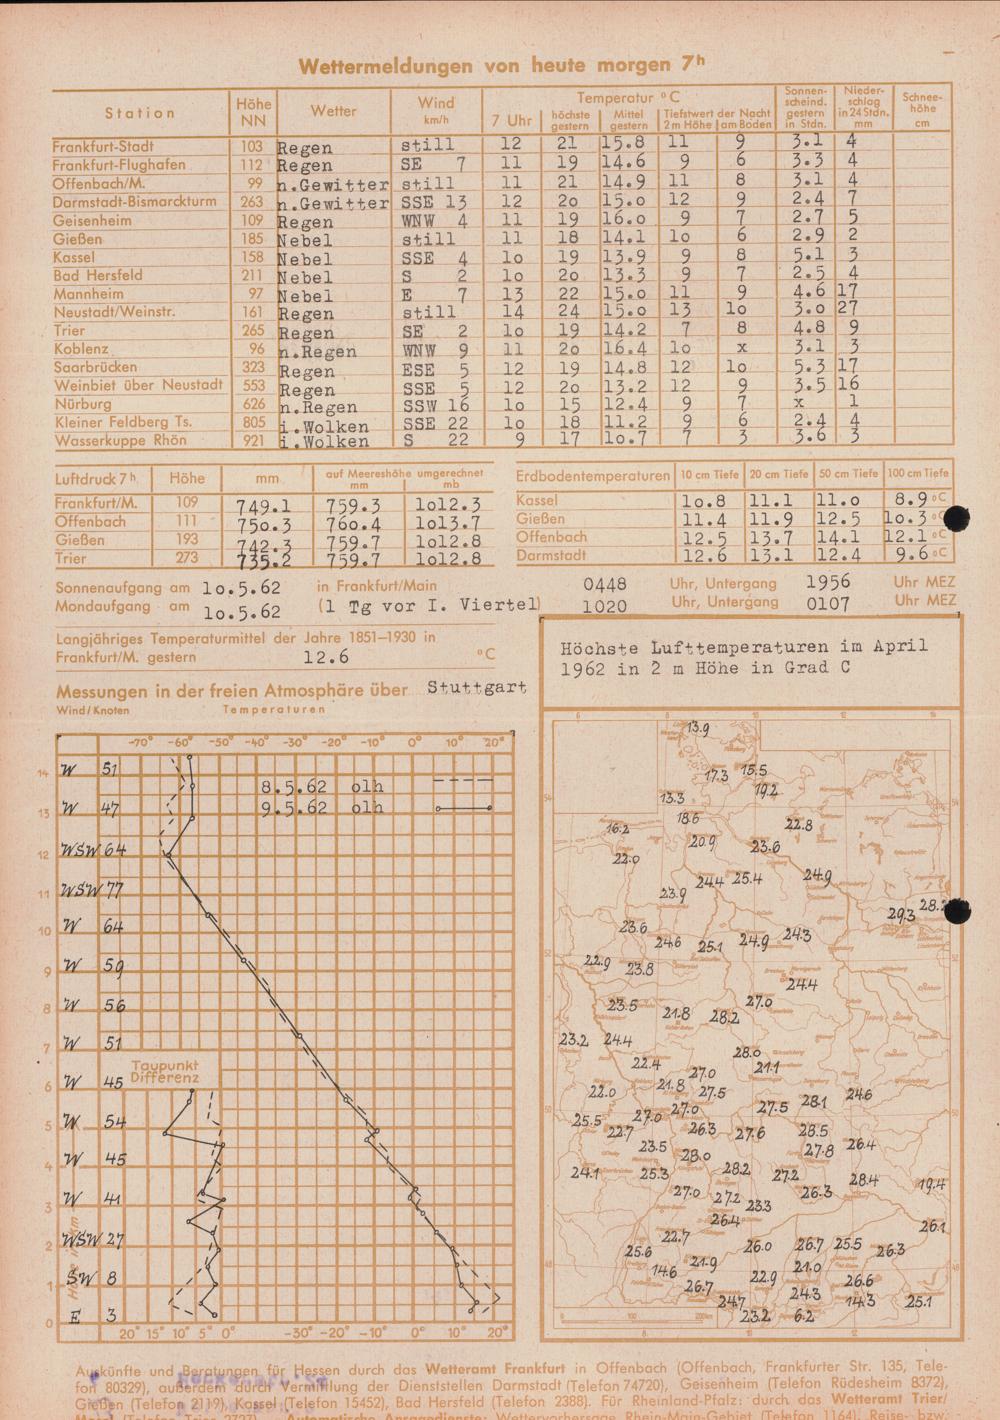 Wettermeldungen von heute morgen 7h
Station Höhe NN Wetter Wind km/h Temperatur °C 7 Uhr höchste gestern Mittel gestern Tiefstwert der Nacht 2 m Höhe am Boden Sonnenscheind. gestern in Stdn. Niederschlag in 24 Stdn. mm Schneehöhe cm
Frankfurt-Stadt 103 Regen still 12 21 15.8 11 9 3.1 4
Frankfurt-Flughafen 112 Regen SE 7 11 19 14.6 9 6 3.3 4
Offenbach/M. 99 n.Gewitter still 11 21 14.9 11 8 3.1 4
Darmstadt-Bismarckturm 263 n.Gewitter SSE 13 12 2o 15.o 12 9 2.4 7
Geisenheim 109 Regen WNW 4 11 19 16.o 9 7 2.7 5
Gießen 185 Nebel still 11 18 14.1 lo 6 2.9 2
Kassel 158 Nebel SSE 4 lo 19 13.9 9 8 5.1 3
Bad Hersfeld 211 Nebel S 2 lo 2o 13.3 9 7 2.5 4
Mannheim 97 Nebel E 7 13 22 15.o 11 9 4.6 17
Neustadt/Weinstr. 161 Regen still 14 24 15.o 13 lo 3.o 27
Trier 265 Regen SE 2 lo 19 14.2 7 8 4.8 9
Koblenz 96 n.Regen WNW 9 11 2o 16.4 lo x 3.1 3
Saarbrücken 323 Regen ESE 5 12 19 14.8 12 lo 5.3 17
Weinbiet über Neustadt 553 Regen SSE 5 12 2o 13.2 12 9 3.5 16
Nürburg 626 n.Regen SSW 16 lo 15 12.4 9 7 x 1
Kleiner Feldberg Ts. 805 i.Wolken SSE 22 lo 18 11.2 9 6 2.4 4
Wasserkuppe Rhön 921 i.Wolken S 22 9 17 lo.7 7 3 3.6 3
Luftdruck 7h Höhe mm auf Meereshöhe umgerechnet mm mb
Frankfurt/M. 109 749.1 759.3 lol2.3
Offenbach 111 75o.3 76o.4 lol3.7
Gießen 193 742.3 759.7 lol2.8
Trier 273 735.2 759.7 lol2.8
Erdbodentemperaturen 10 cm Tiefe 20 cm Tiefe 50 cm Tiefe 100 cm Tiefe
Kassel lo.8 11.1 11.o 8.9 °C
Gießen 11.4 11.9 12.5 lo.3 °C
Offenbach 12.5 13.7 14.1 12.1 °C
Darmstadt 12.6 13.1 12.4 9.6 °C
Sonnenaufgang am lo.5.62 in Frankfurt/Main 0448 Uhr, Untergang 1956 Uhr MEZ
Mondaufgang am lo.5.62 (l Tg vor I. Viertel) 1020 Uhr, Untergang 0107 Uhr MEZ
Langjähriges Temperaturmittel der Jahre 1851–1930 in
Frankfurt/M. gestern 12.6 °C
Messungen in der freien Atmosphäre über Stuttgart
Wind/Knoten Temperaturen
-70° -60° -50° -40° -30° -20° -10° 0° 10° 20°
14 W 51
8.5.62 olh
13 W 47
9.5.62 olh
12 WSW 64
11 WSW 77
10 W 64
9 W 59
8 W 56
7 W 51
Taupunkt
Differenz
6 W 45
5 W 54
4 W 45
3 W 41
2 WSW 27
1 SW 8
0 E 3
20° 15° 10° 5° 0° -30° -20° -10° 0° 10° 20°
Höchste Lufttemperaturen im April
1962 in 2 m Höhe in Grad C
13.9
17.3 15.5
13.3 19.2
16.2 18.6 22.8
22.0 20.9 23.6
23.9 24.4 25.4 24.9
29.3 28.2
23.6 24.6 25.1 24.9 24.3
22.9 23.8
24.4
23.5 21.8 28.2 27.0
23.2 24.4
22.4 28.0
27.0 21.1
22.0 21.8 27.5 28.1 24.6
25.5 27.0 27.0 27.5
22.7 26.3 27.6 28.5
23.5 28.0 27.8 26.4
24.1 25.3 28.2 27.2 28.4 19.4
27.0 27.2 23.3 26.3
26.4 26.1
22.7
25.6 26.0 26.7 25.5 26.3
14.6 21.9 22.9 21.0 26.6
26.7 24.3 14.3 25.1
24.7 23.2 6.2
Auskünfte und Beratungen für Hessen durch das Wetteramt Frankfurt in Offenbach (Offenbach, Frankfurter Str. 135, Tele-
fon 80329), außerdem durch Vermittlung der Dienststellen Darmstadt (Telefon 74720), Geisenheim (Telefon Rüdesheim 8372),
Gießen (Telefon 2119), Kassel (Telefon 15452), Bad Hersfeld (Telefon 2388). Für Rheinland-Pfalz: durch das Wetteramt Trier/